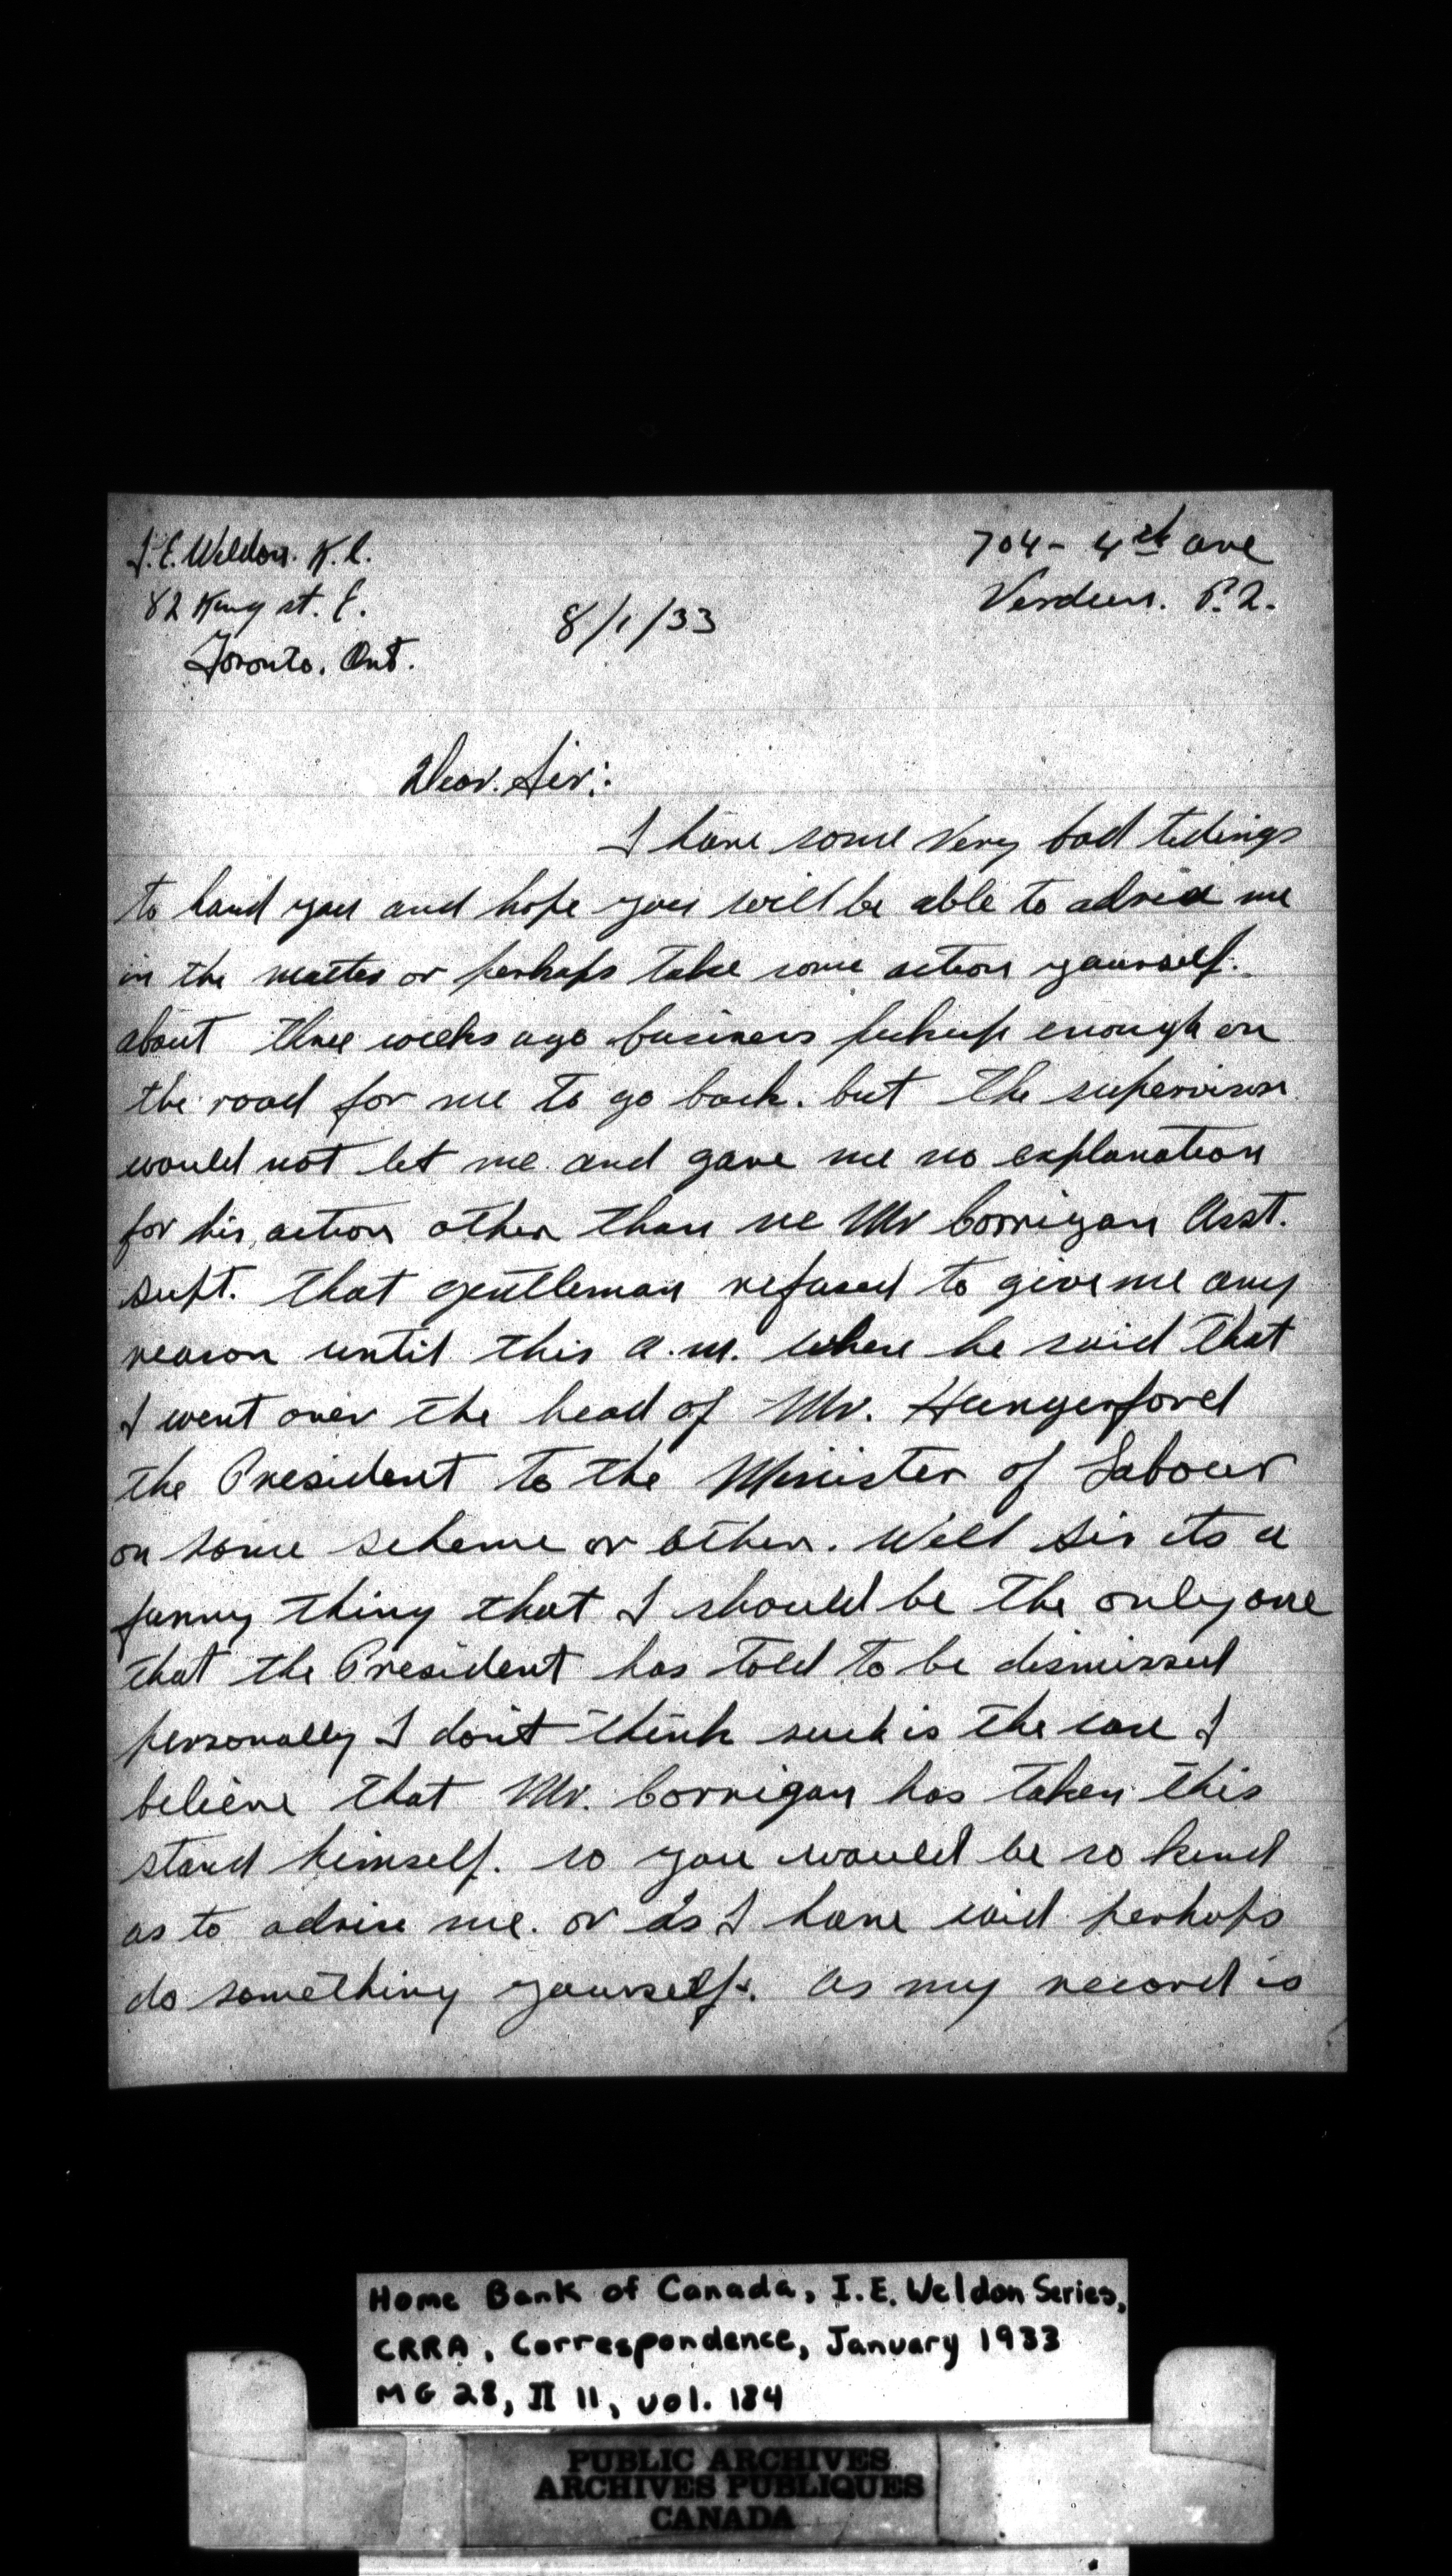 I. E. Weldon. K.C.
82 King st. E.
Toronto. Ont.
704 - 4th ave
Verdun. P.Q.
8/1/33
Dear. Sir:
I have some very bad tidings
to hand you and hope you will be able to advice me
in the matter or perhaps take some action yourself.
about three weeks ago business pickup enough on
the road for me to go back. but the supervisor
would not let me and gave me no explanation
for his action other than see Mr Corrigan Asst.
Supt. that gentleman refused to give me any
reason until this a.m. when he said that
I went over the head of Mr. Hungerford
the President to the Minister of Labour
on some scheme or other. Well Sir its a
funny thing that I should be the only one
that the President has told to be dismissed
personally I don't think such is the case I
believe that Mr. Corrigan has taken this
stand himself. so you would be so kind
as to advise me. or as I have said perhaps
do something yourself. as my record is
Home Bank of Canada, I.E. Weldon Series,
CRRA, Correspondence, January 1933
MG 28, II 11, vol. 184
PUBLIC ARCHIVES
ARCHIVES PUBLIQUES
CANADA